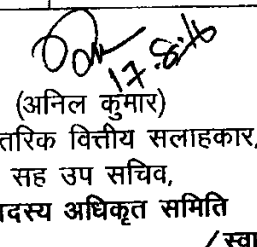 17.8.16
(अनिल कुमार)
तरिक वित्तीय सलाहकार,
सह उप सचिव,
दस्य अधिकृत समिति
/ स्वा